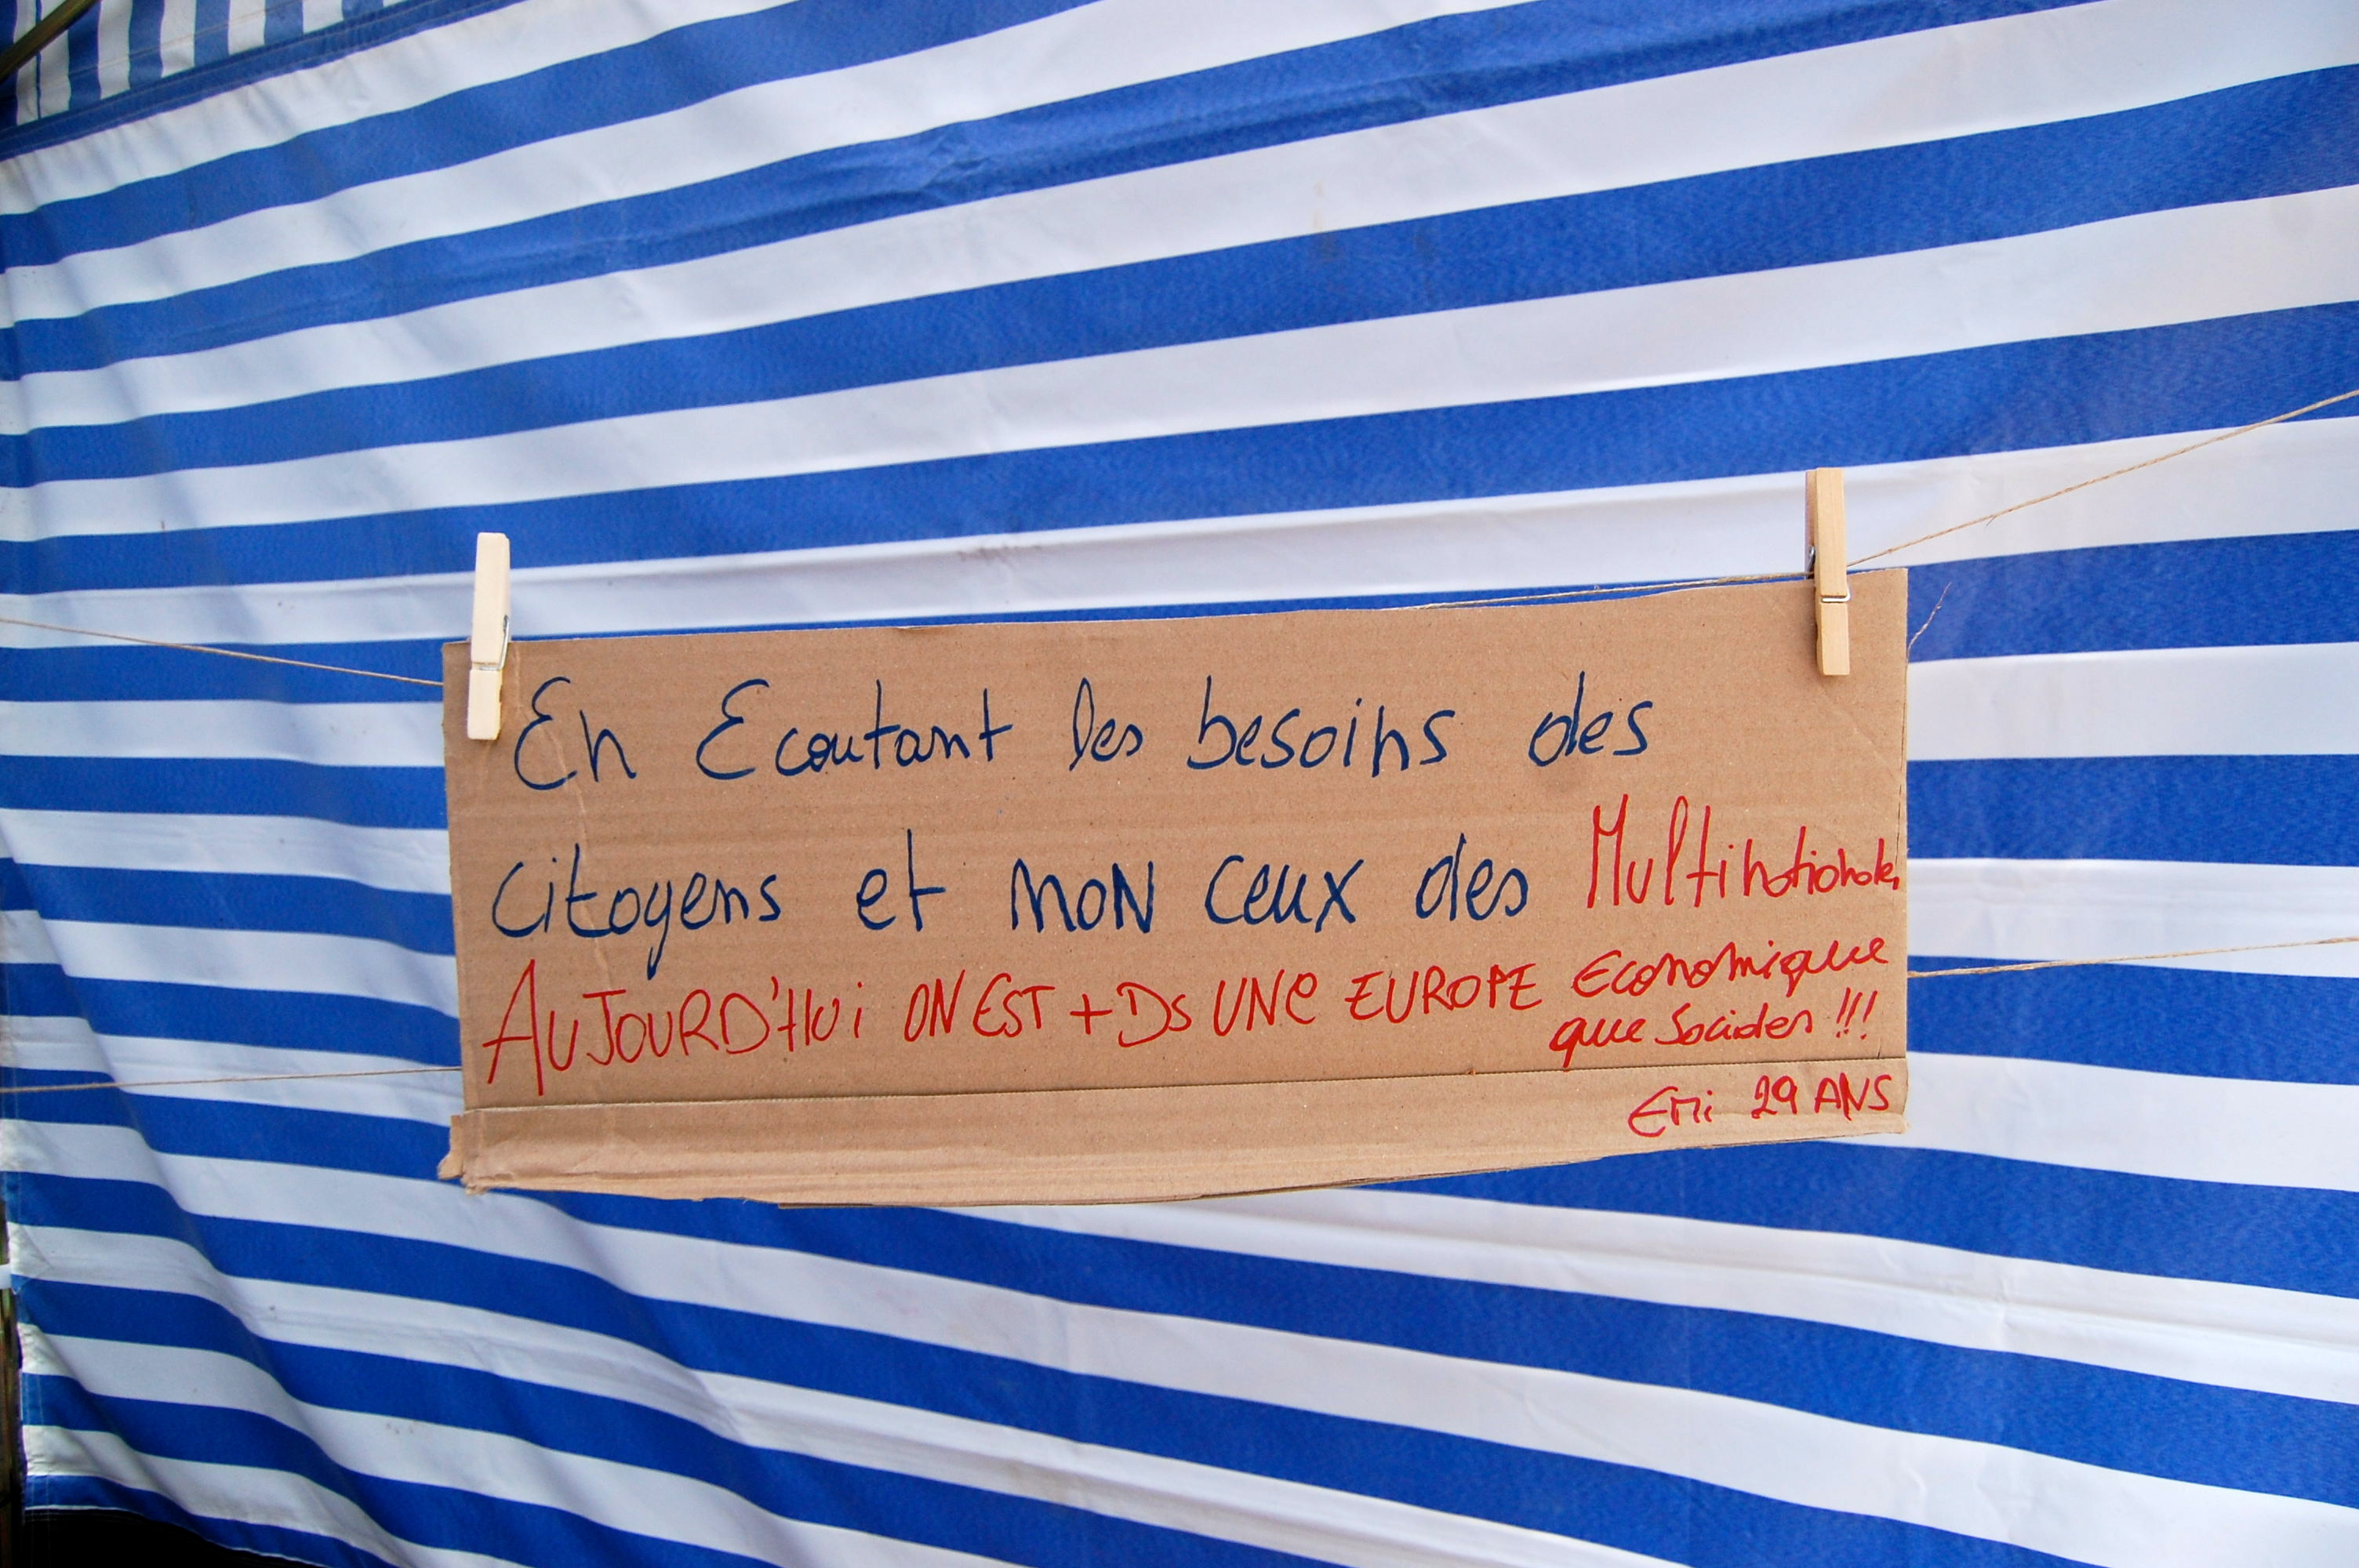 En Ecoutant les besoins des
citoyens et non ceux des Multinationales
AUJOURD'HUi ON EST + Ds UNe EUROPE Economique
que Sociales !!!
Emi 29 ANS